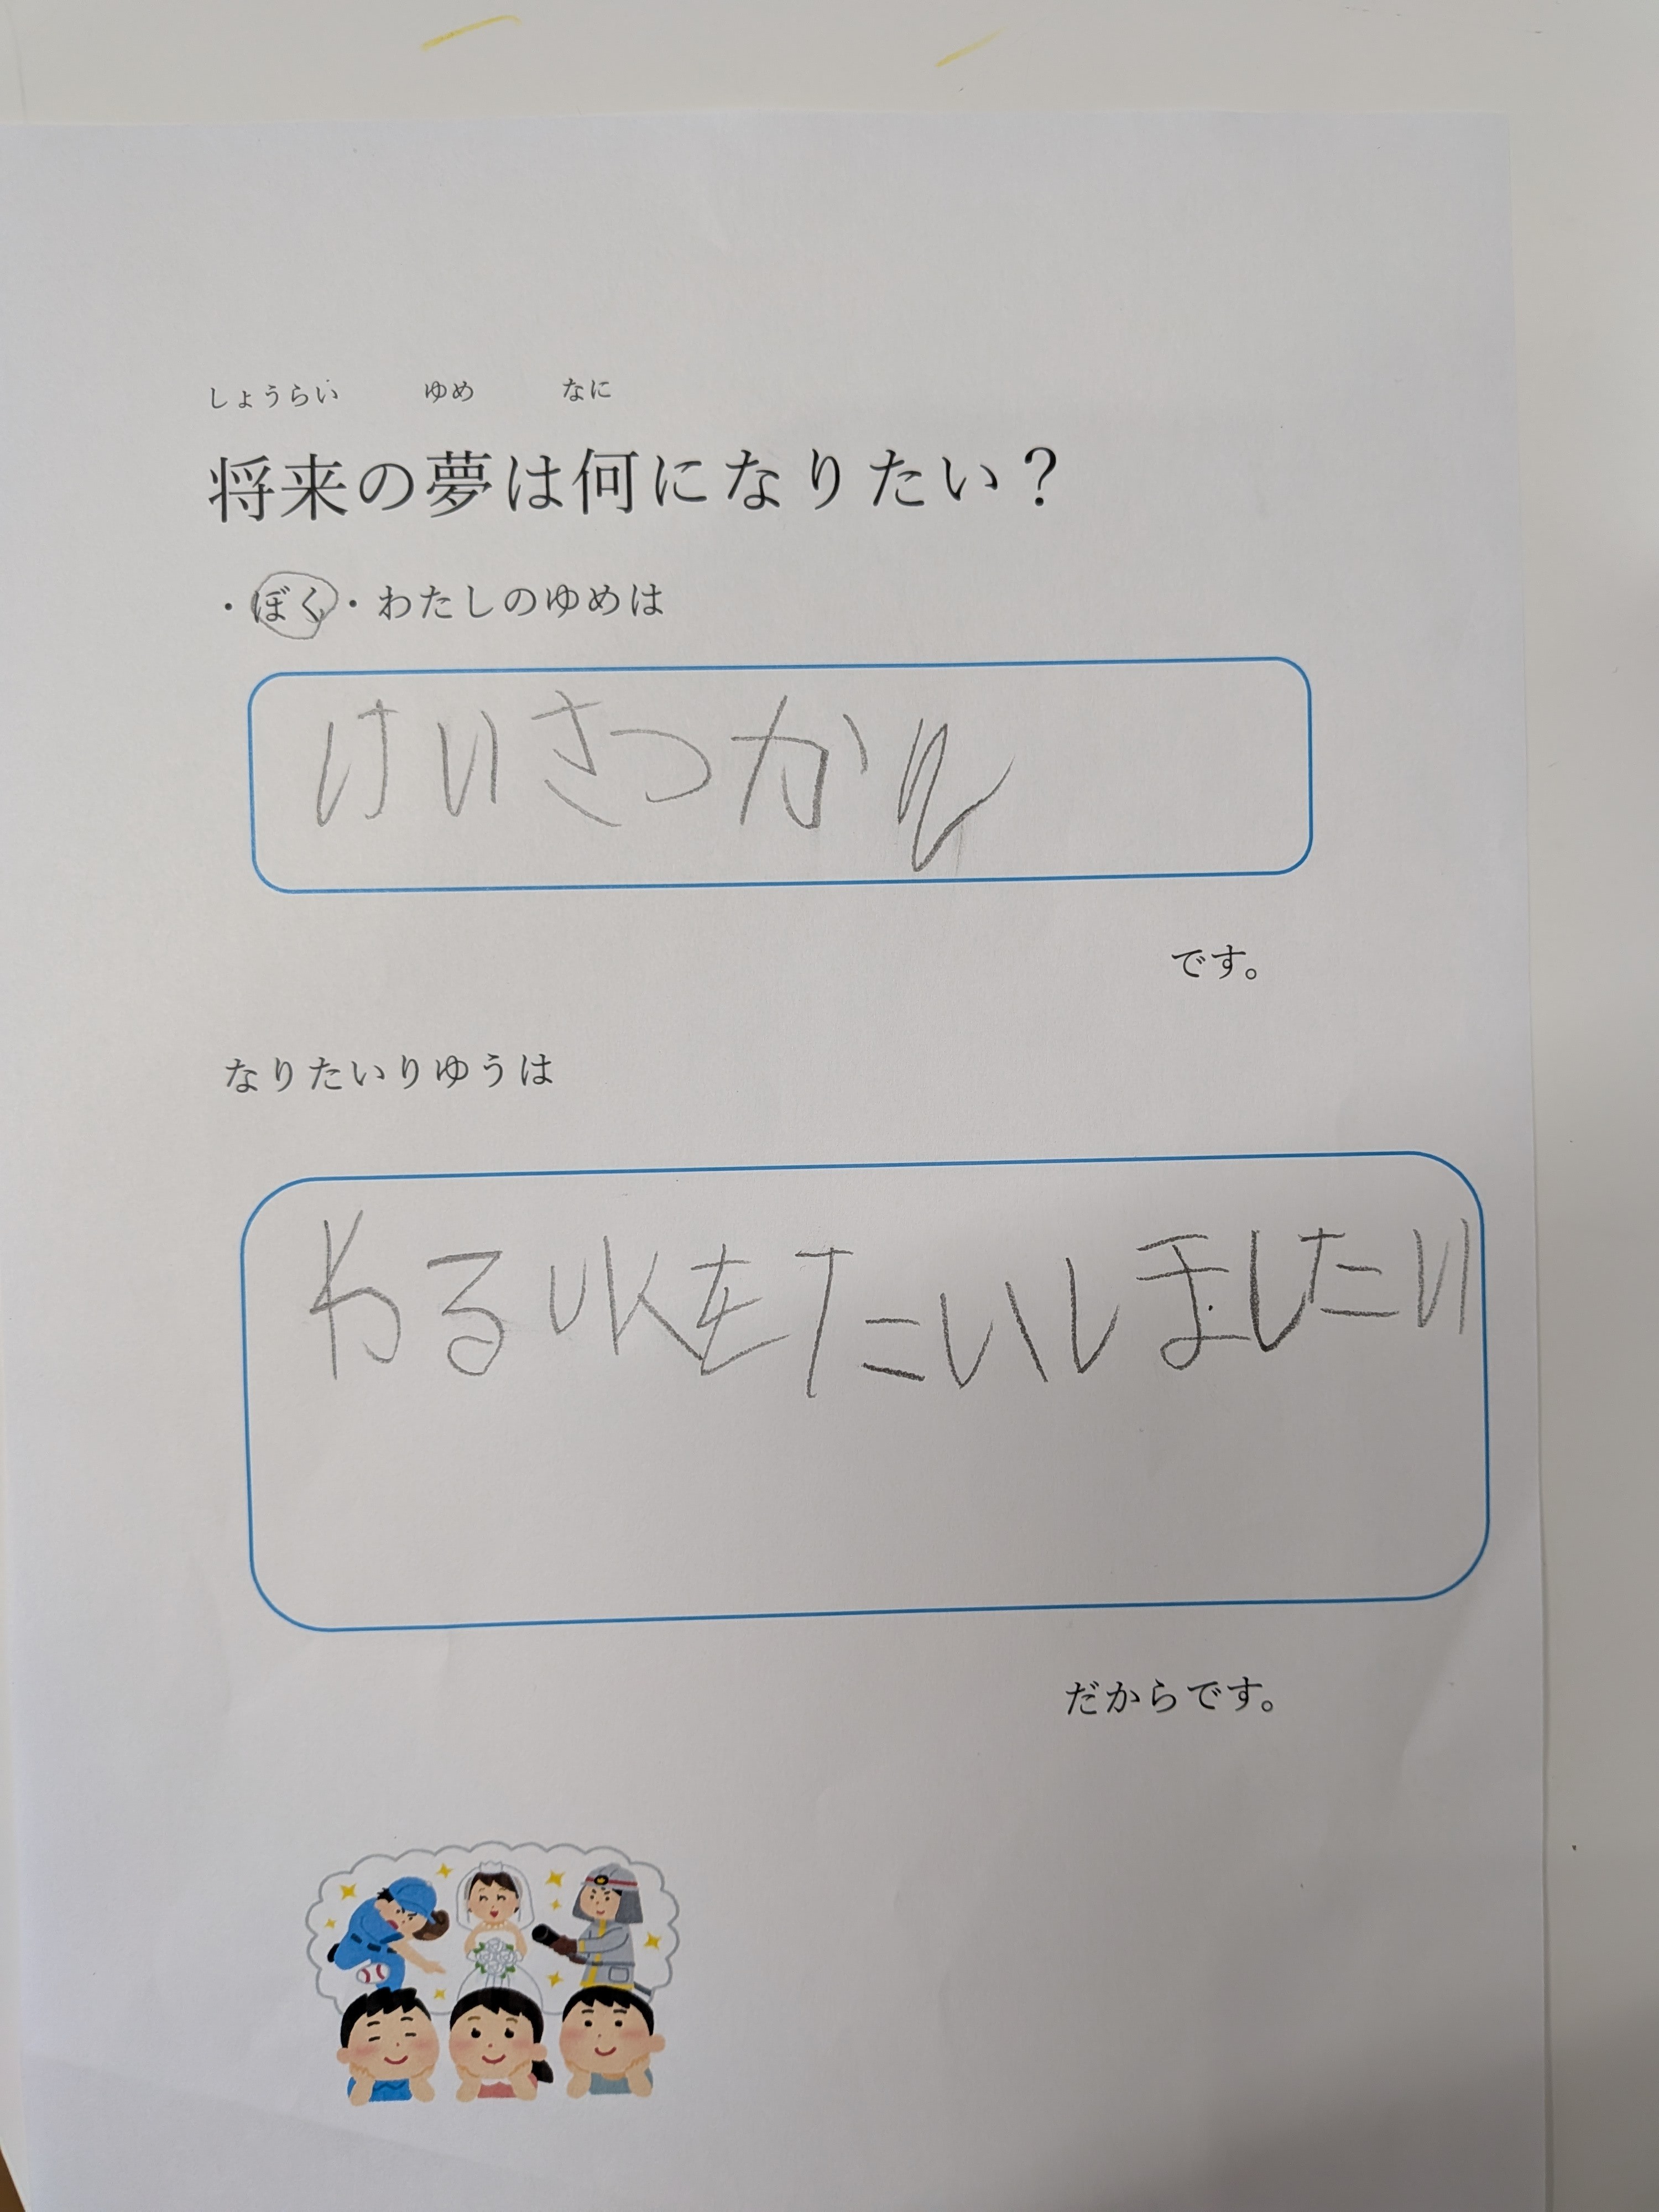 しょうらい ゆめ なに
将来の夢は何になりたい?
・ぼく・わたしのゆめは
けいさつかん
です。
なりたいりゆうは
わるい人をたいしましたい
だからです。